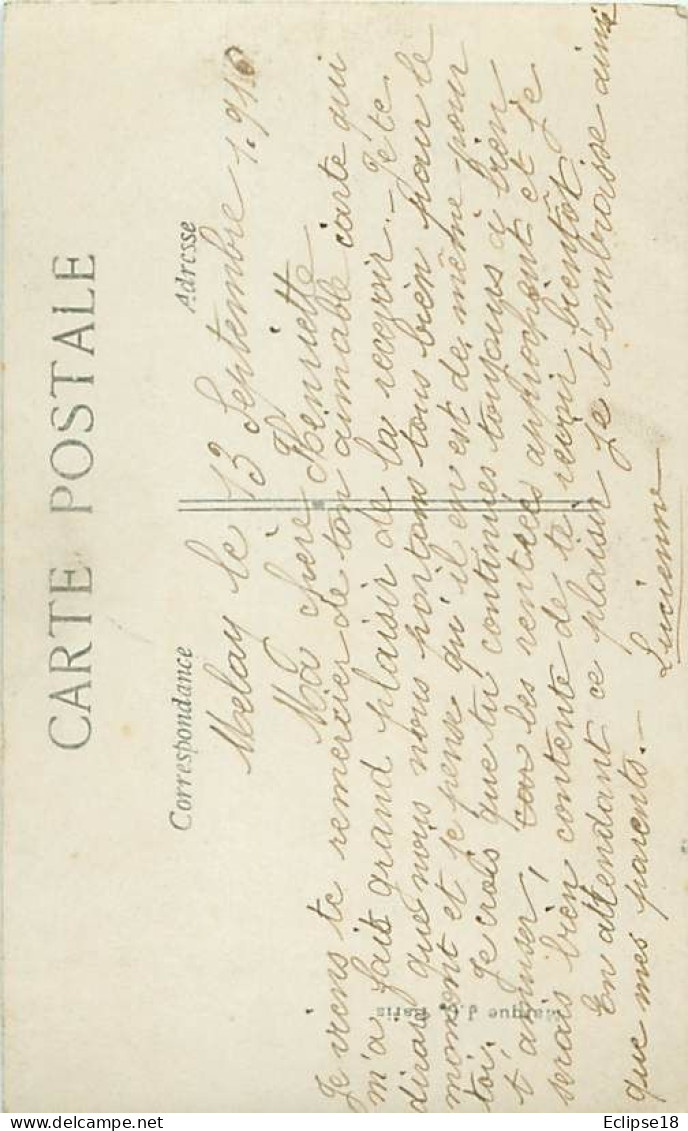 CARTE POSTALE
Correspondance
Adresse
Melay le 13 Septembre 1.916
Ma chère Henriette
Je viens te remercier de ton aimable carte qui
m'a fait grand plaisir de la recevoir. - Je te
dirais que nous nous portons tous bien pour le
moment et je pense qu'il en est de même pour
toi. Je crois que tu continues toujours à bien
t'amuser, car les rentrées approchent et je
serais bien contente de te revoir bientôt.
En attendant ce plaisir je t'embrasse ainsi
que mes parents. -
Lucienne
Marque J.C. Paris
© Eclipse18